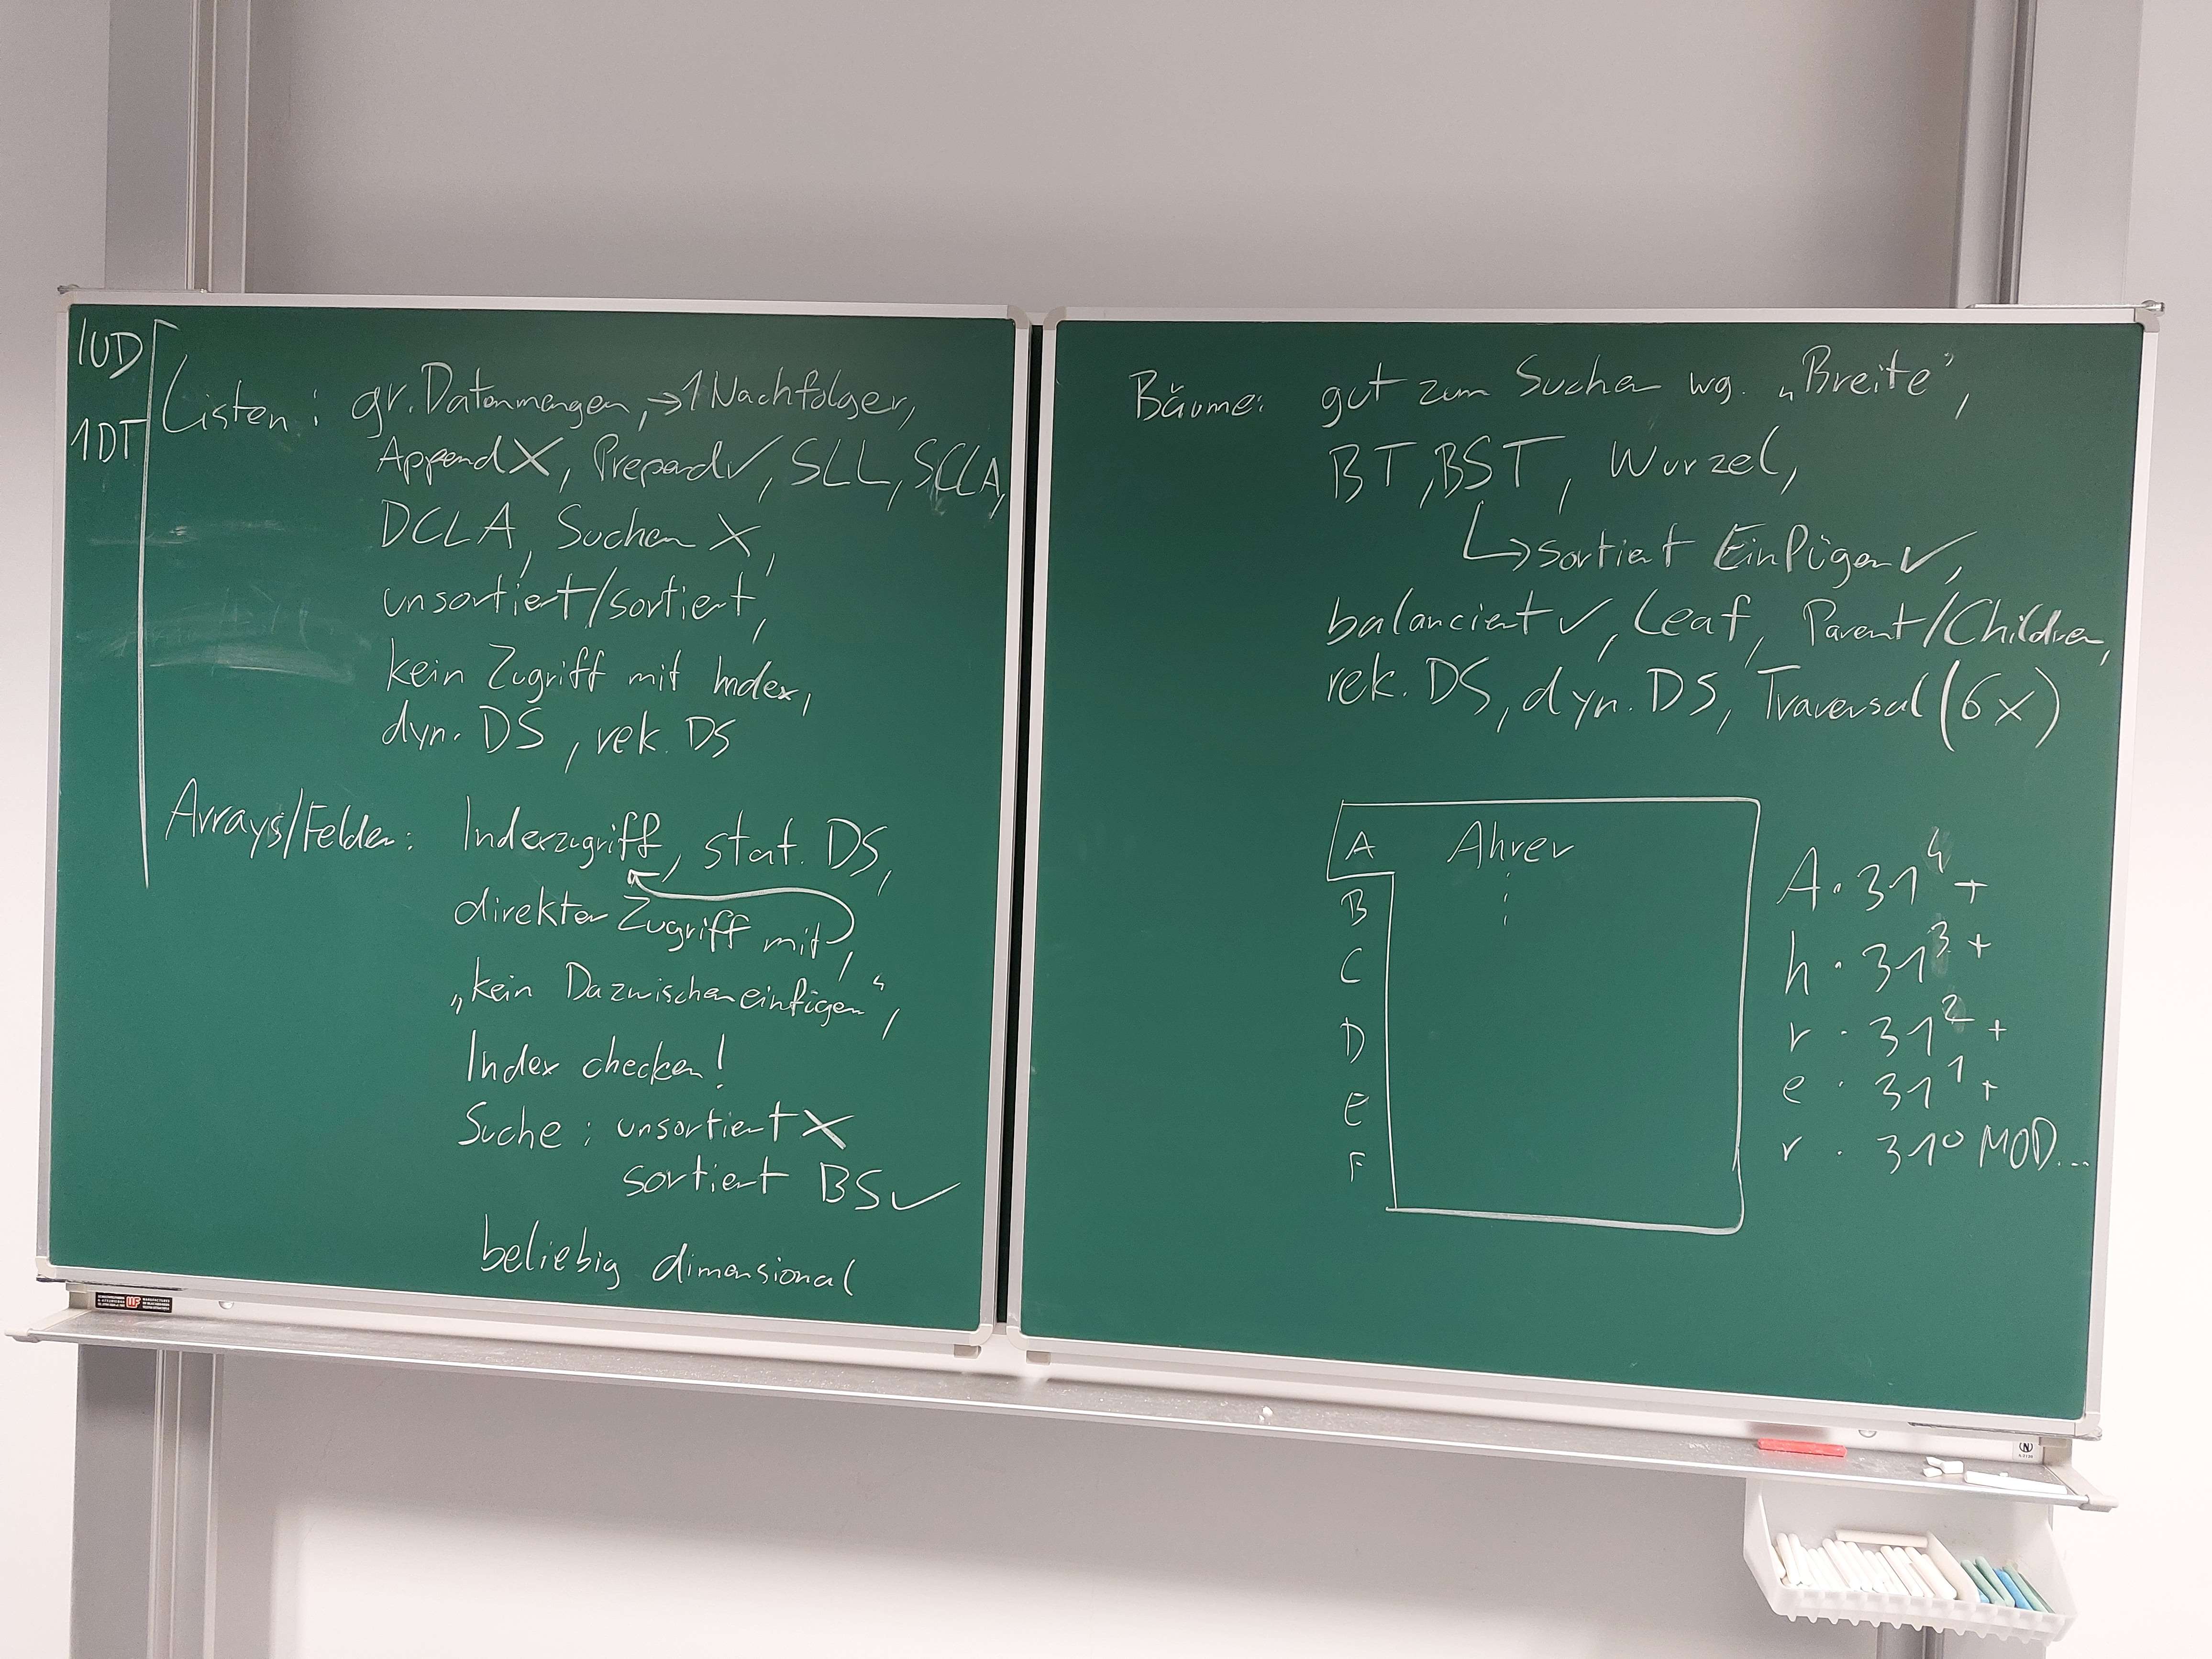 IUD
1DT
Listen: gr. Datenmengen, → 1 Nachfolger,
Append X, Prepend ✓, SLL, SCLA,
DCLA, Suchen X,
unsortiert/sortiert,
kein Zugriff mit Index,
dyn. DS, rek. DS
Arrays/Felder: Indexzugriff, stat. DS,
direkter Zugriff mit,
„kein Dazwischeneinfügen“,
Index checken!
Suche: unsortiert X
sortiert BS ✓
beliebig dimensional
Bäume: gut zum Suchen wg. „Breite“,
BT, BST, Wurzel,
↳ sortiert Einfügen ✓,
balanciert ✓, Leaf, Parent/Children,
rek. DS, dyn. DS, Traversal (6x)
A Ahrer
B
C
D
E
F
A · 31⁴ +
h · 31³ +
r · 31² +
e · 31¹ +
r · 31⁰ MOD...